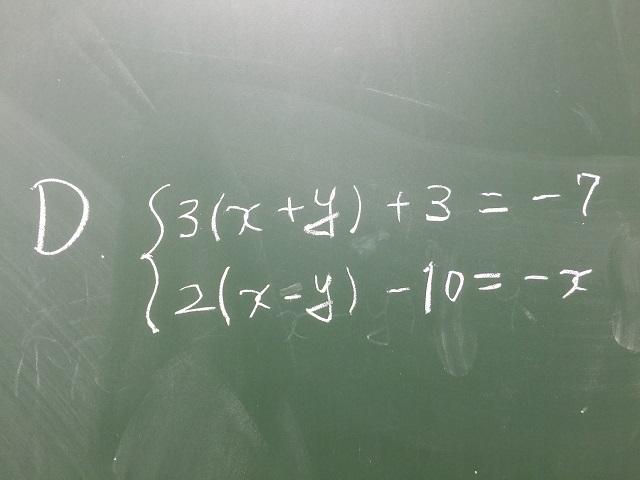 D
3(x+y)+3=-7
2(x-y)-10=-x